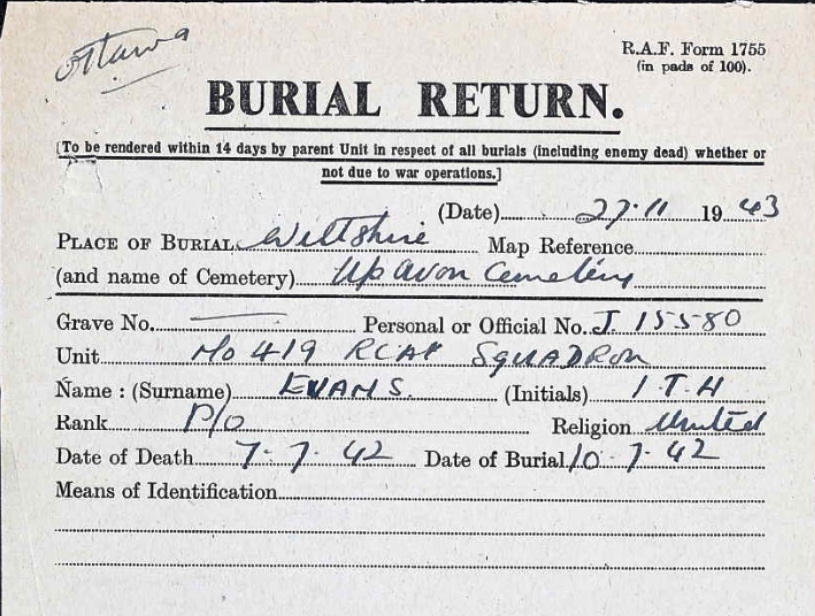 Ottawa
R.A.F. Form 1755
(in pads of 100).
BURIAL RETURN.
[To be rendered within 14 days by parent Unit in respect of all burials (including enemy dead) whether or
not due to war operations.]
(Date) 27·11 19 43
PLACE OF BURIAL Wiltshire Map Reference
(and name of Cemetery) Upavon Cemetery
Grave No. — Personal or Official No. J. 15580
Unit No 419 RCAF SQUADRON
Name : (Surname) EVANS. (Initials) I.T.H
Rank P/O Religion United
Date of Death 7·7·42 Date of Burial 10·7·42
Means of Identification